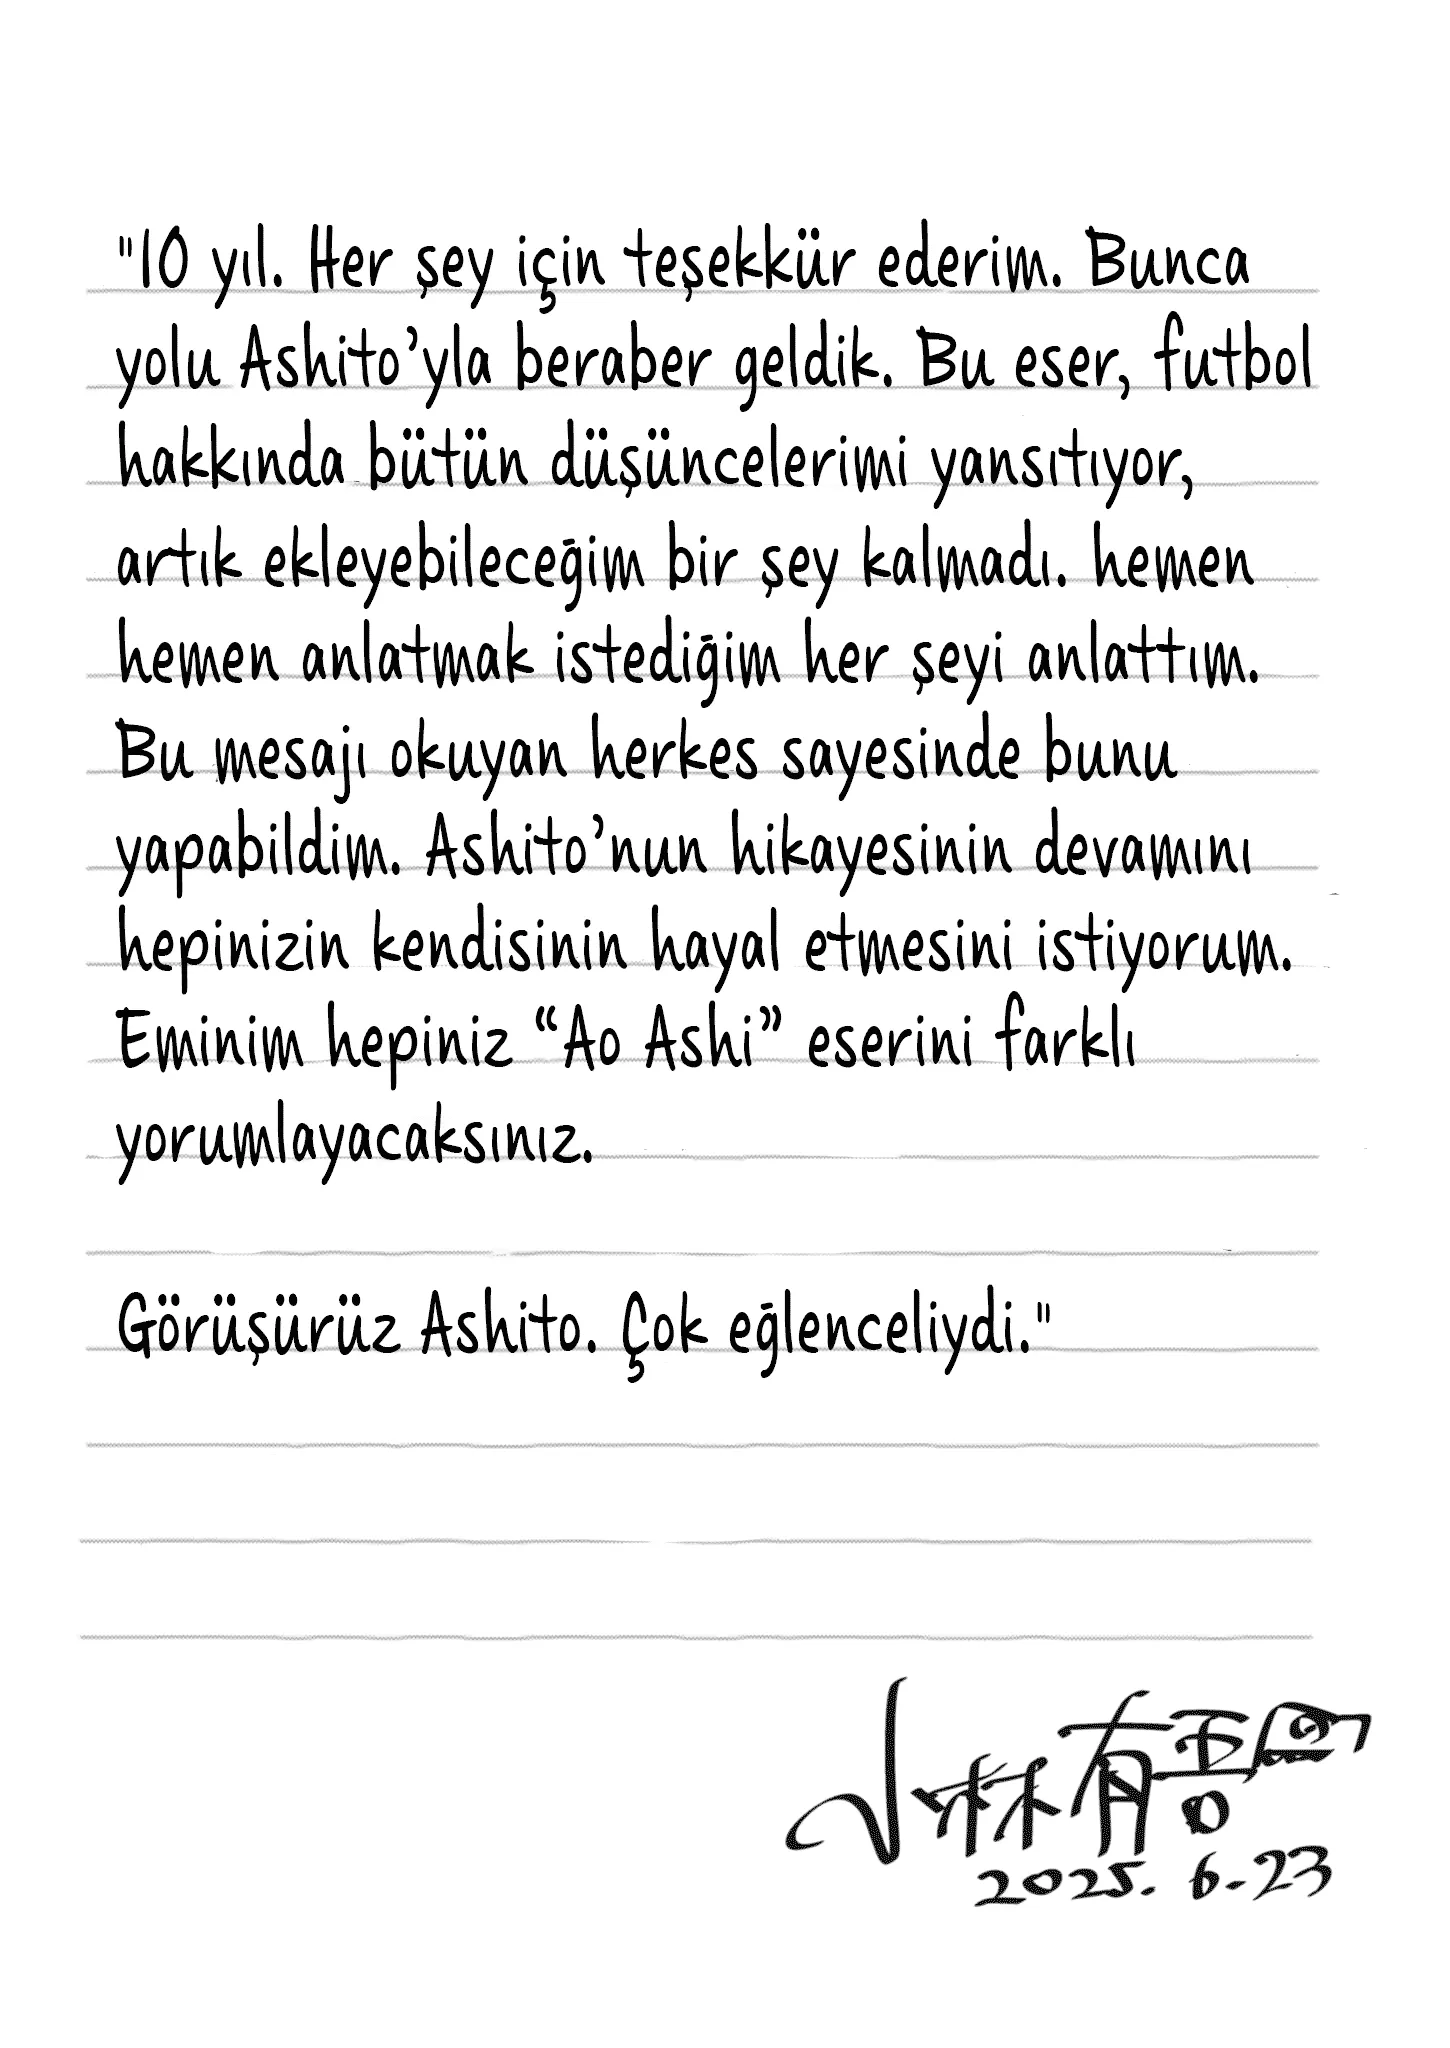 "10 yıl. Her şey için teşekkür ederim. Bunca
yolu Ashito’yla beraber geldik. Bu eser, futbol
hakkında bütün düşüncelerimi yansıtıyor,
artık ekleyebileceğim bir şey kalmadı. hemen
hemen anlatmak istediğim her şeyi anlattım.
Bu mesajı okuyan herkes sayesinde bunu
yapabildim. Ashito’nun hikayesinin devamını
hepinizin kendisinin hayal etmesini istiyorum.
Eminim hepiniz “Ao Ashi” eserini farklı
yorumlayacaksınız.
Görüşürüz Ashito. Çok eğlenceliydi."
小林有吾
2025. 6-23